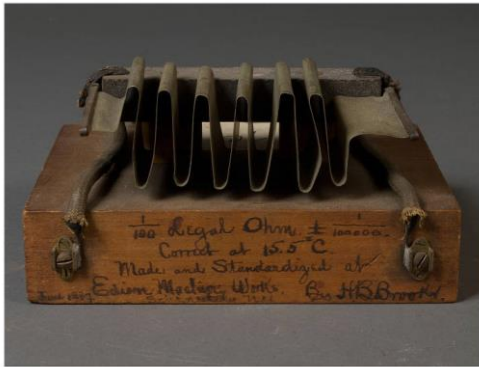 1/100 Legal Ohm ± 1/100000.
Correct at 15.5°C.
Made and Standardized at
Edison Works. By H.B. Brooks.